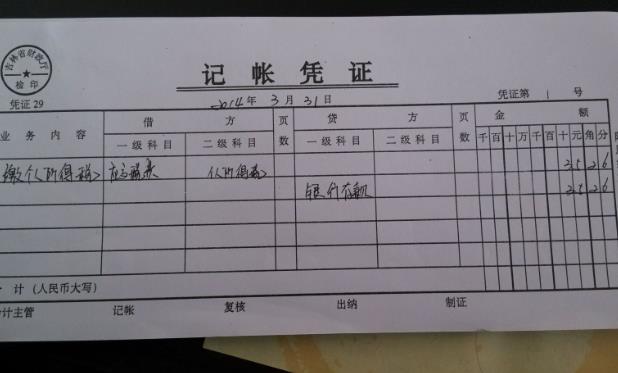 吉林省财政厅
检印
记帐凭证
凭证29
2014年3月31日
凭证第1号
业务内容 借方 页数 贷方 页数 金额
一级科目 二级科目 一级科目 二级科目 千百十万千百十元角分
缴个人所得税 个人所得税 2526
银行存款 2526
计(人民币大写)
计主管 记帐 复核 出纳 制证